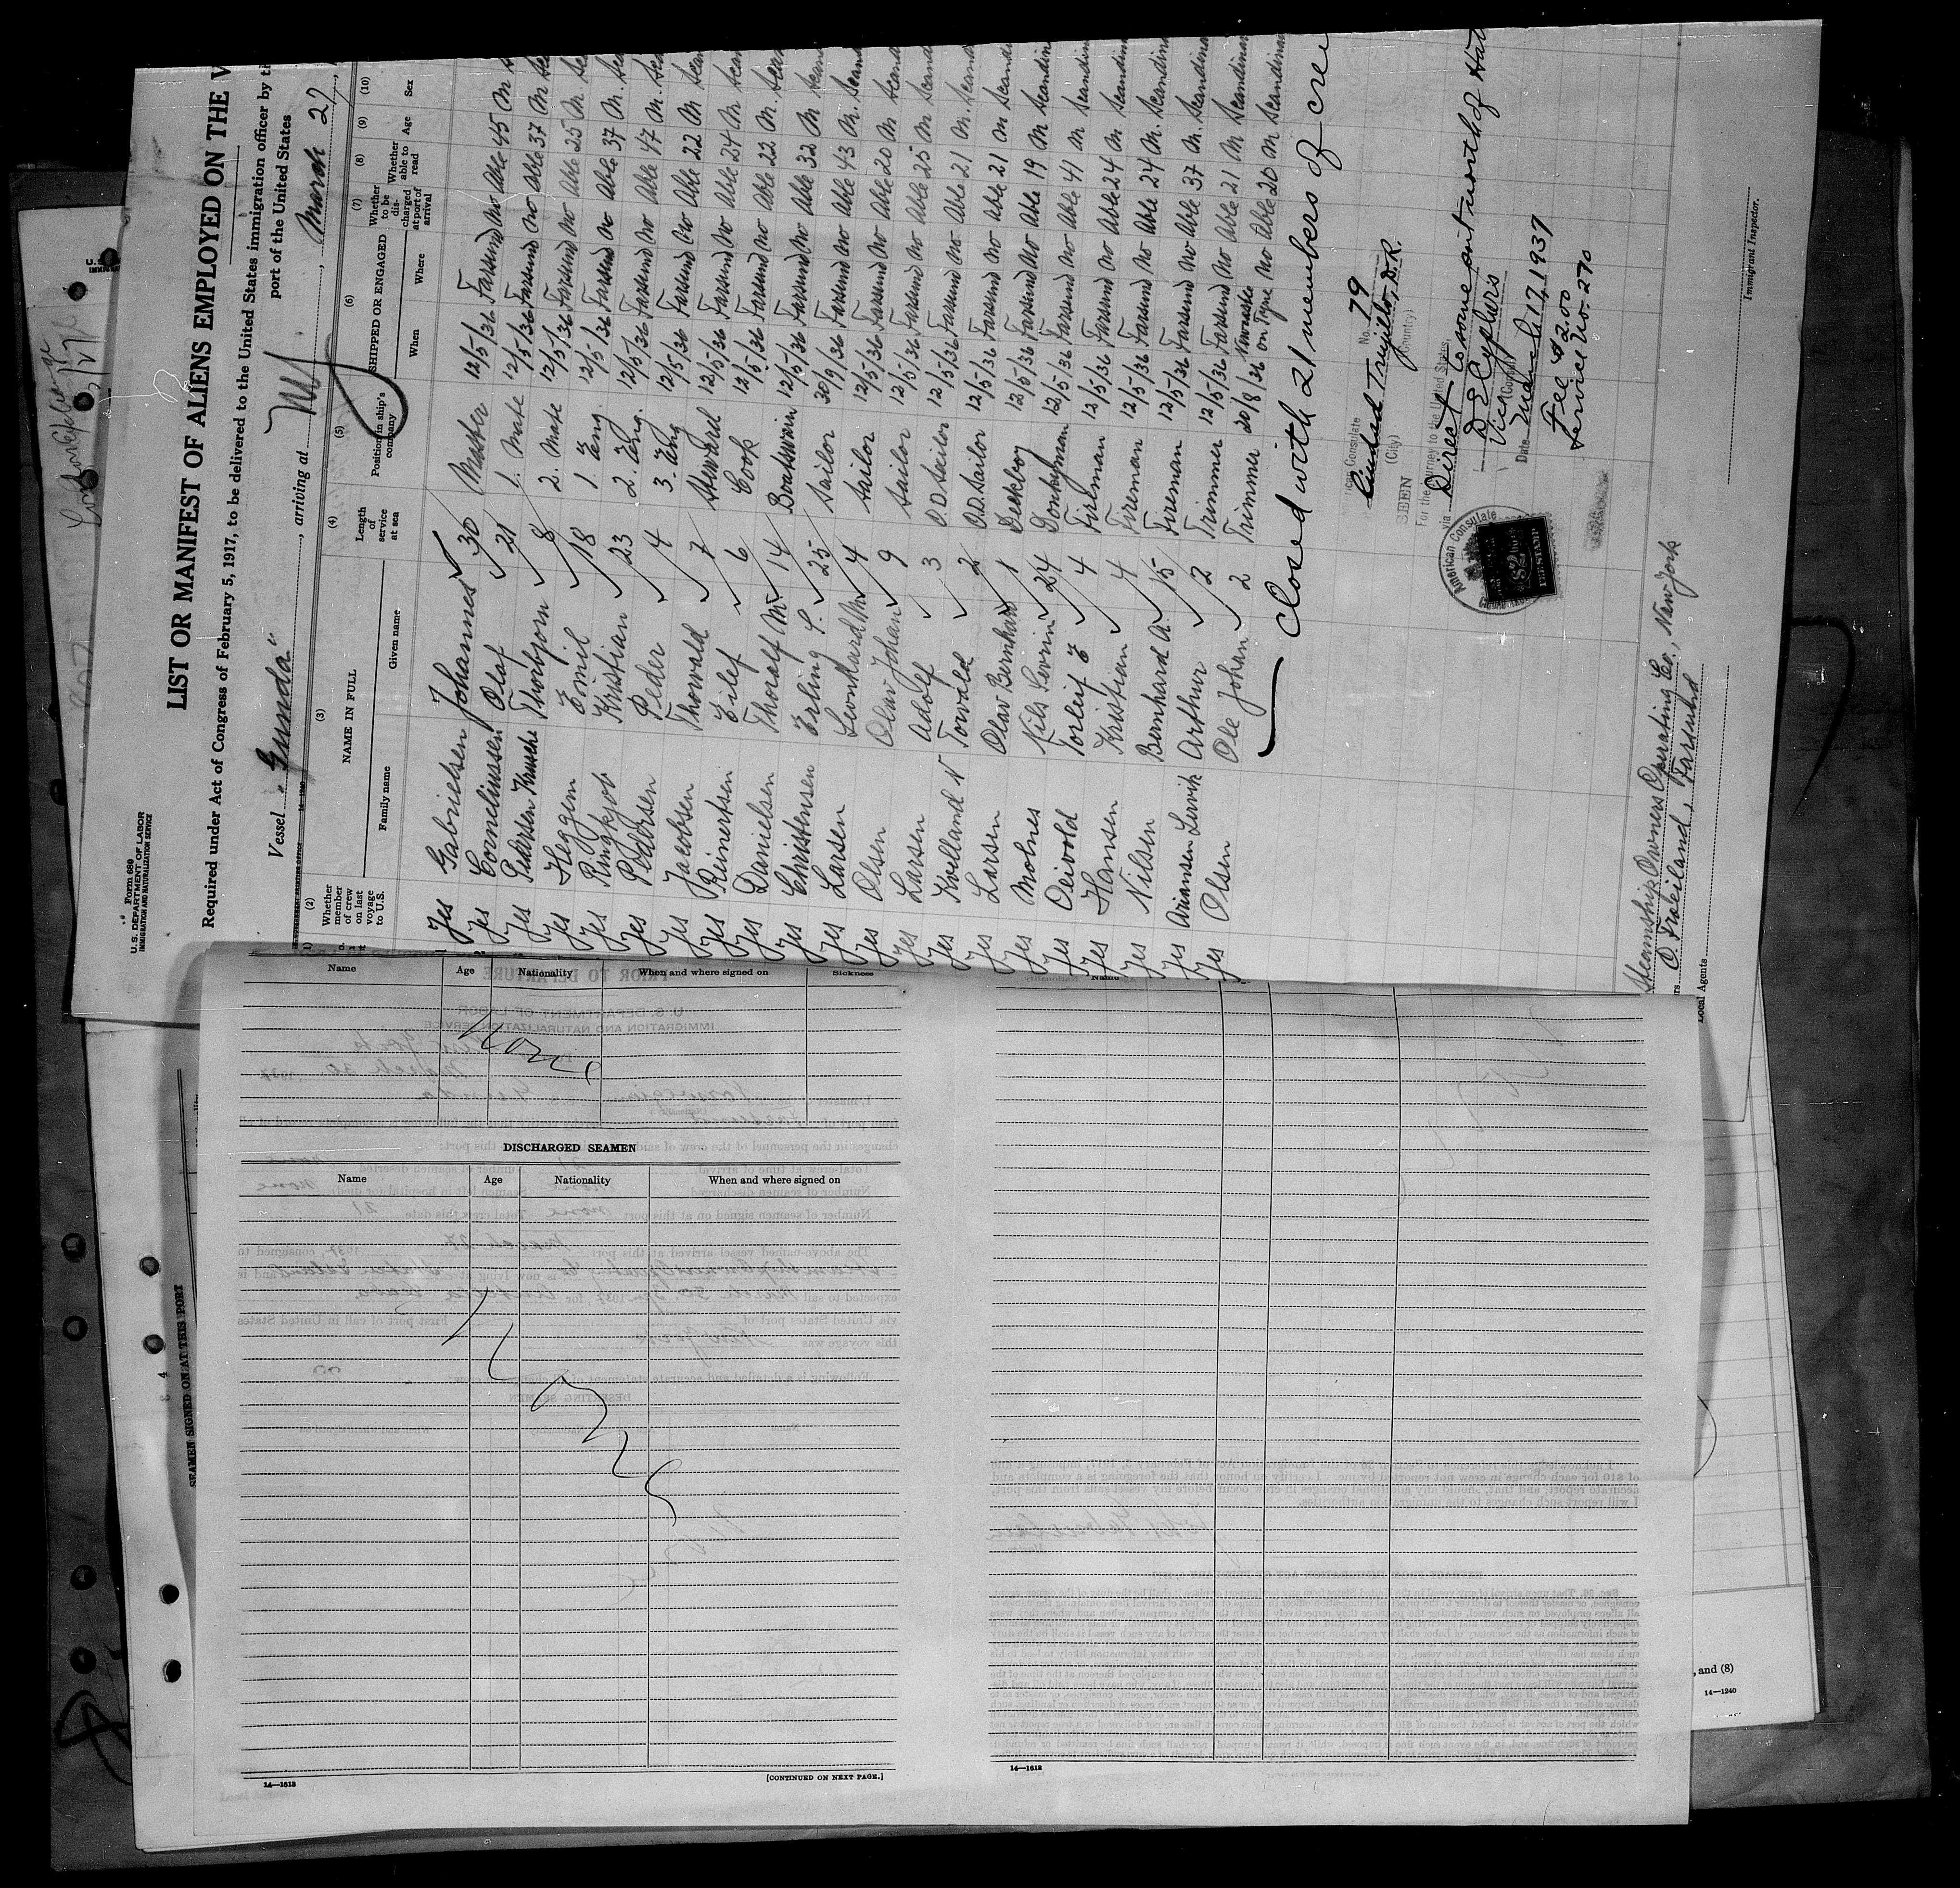 Form 689
U. S. DEPARTMENT OF LABOR
IMMIGRATION AND NATURALIZATION SERVICE
LIST OR MANIFEST OF ALIENS EMPLOYED ON THE V
Required under Act of Congress of February 5, 1917, to be delivered to the United States immigration officer by t
port of the United States
Vessel "Gunda", arriving at N.Y., March 27,
14-1240
(2) (3) (4) (5) (6) (7) (8) (9) (10)
Whether member of crew on last voyage to U.S.
NAME IN FULL
Family name
Given name
Length of service at sea
Position in ship's company
SHIPPED OR ENGAGED
When
Where
Whether to be discharged at port of arrival
Whether able to read
Age
Sex
Yes Gabrielsen Johannes 30 Master 12/5/36 Farsund No Able 45 M
Yes Corneliussen Olaf 21 1. Mate 12/5/36 Farsund No Able 37 M
Yes Pedersen Thorbjorn 8 2. Mate 12/5/36 Farsund No Able 25 M.
Yes Heggem Emil 18 1 Eng. 12/5/36 Farsund No Able 37 M.
Yes Ringkjob Kristian 23 2. Eng. 12/5/36 Farsund No Able 47 M.
Yes Pedersen Peder 4 3. Eng 12/5/36 Farsund No Able 22 M
Yes Jacobsen Thorvald 7 Steward 12/5/36 Farsund No Able 24 M
Yes Reinertsen Eilef 6 Cook 12/5/36 Farsund No Able 22 M.
Yes Danielsen Thoralf M 14 Boatswain 12/5/36 Farsund No Able 32 M
Yes Christensen Erling S. 25 Sailor 30/9/36 Farsund No Able 43 M.
Yes Larsen Leonhard M 4 Sailor 12/5/36 Farsund No Able 20 M
Yes Olsen Olav Johan 9 Sailor 12/5/36 Farsund No Able 25 M
Yes Larsen Adolf 3 O.D. Sailor 12/5/36 Farsund No Able 21 M.
Yes Kvelland N Towald 2 O.D. Sailor 12/5/36 Farsund No Able 21 M
Yes Larsen Olav Bernhard 1 Deckboy 12/5/36 Farsund No Able 19 M
Yes Molnes Nils Severin 24 Donkeyman 12/5/36 Farsund No Able 41 M
Yes Oeivold Torleif E 4 Fireman 12/5/36 Farsund No Able 24 M
Yes Hansen Kristian 4 Fireman 12/5/36 Farsund No Able 24 M.
Yes Nilsen Bernhard A. 15 Fireman 12/5/36 Farsund No Able 37 M.
Yes Ariansen Lervik Arthur 2 Trimmer 12/5/36 Farsund No Able 21 M
Yes Olsen Ole Johan 2 Trimmer 20/8/36 Newcastle on Tyne No Able 20 M Scandinav
Closed with 21 members of crew
Consulate No. 79
Ciudad Trujillo, D.R.
(City) (Country)
SEEN
For the journey to the United States,
via Direct to some port north of Hat
D E Cyphers
Vice Consul
Date March 17, 1937
Fee $2.00
Service No. 270
American Consulate
$2
FEE STAMP
Immigrant Inspector.
Steamship Owners Operating Co., New York
O. Freiland, Farsund
Local Agents
Name Age Nationality When and where signed on Sickness
None
DISCHARGED SEAMEN
Name Age Nationality When and where signed on
None
14—1613
[CONTINUED ON NEXT PAGE.]
14—1612
SEAMEN SIGNED ON AT THIS PORT
, and (8)
14—1240